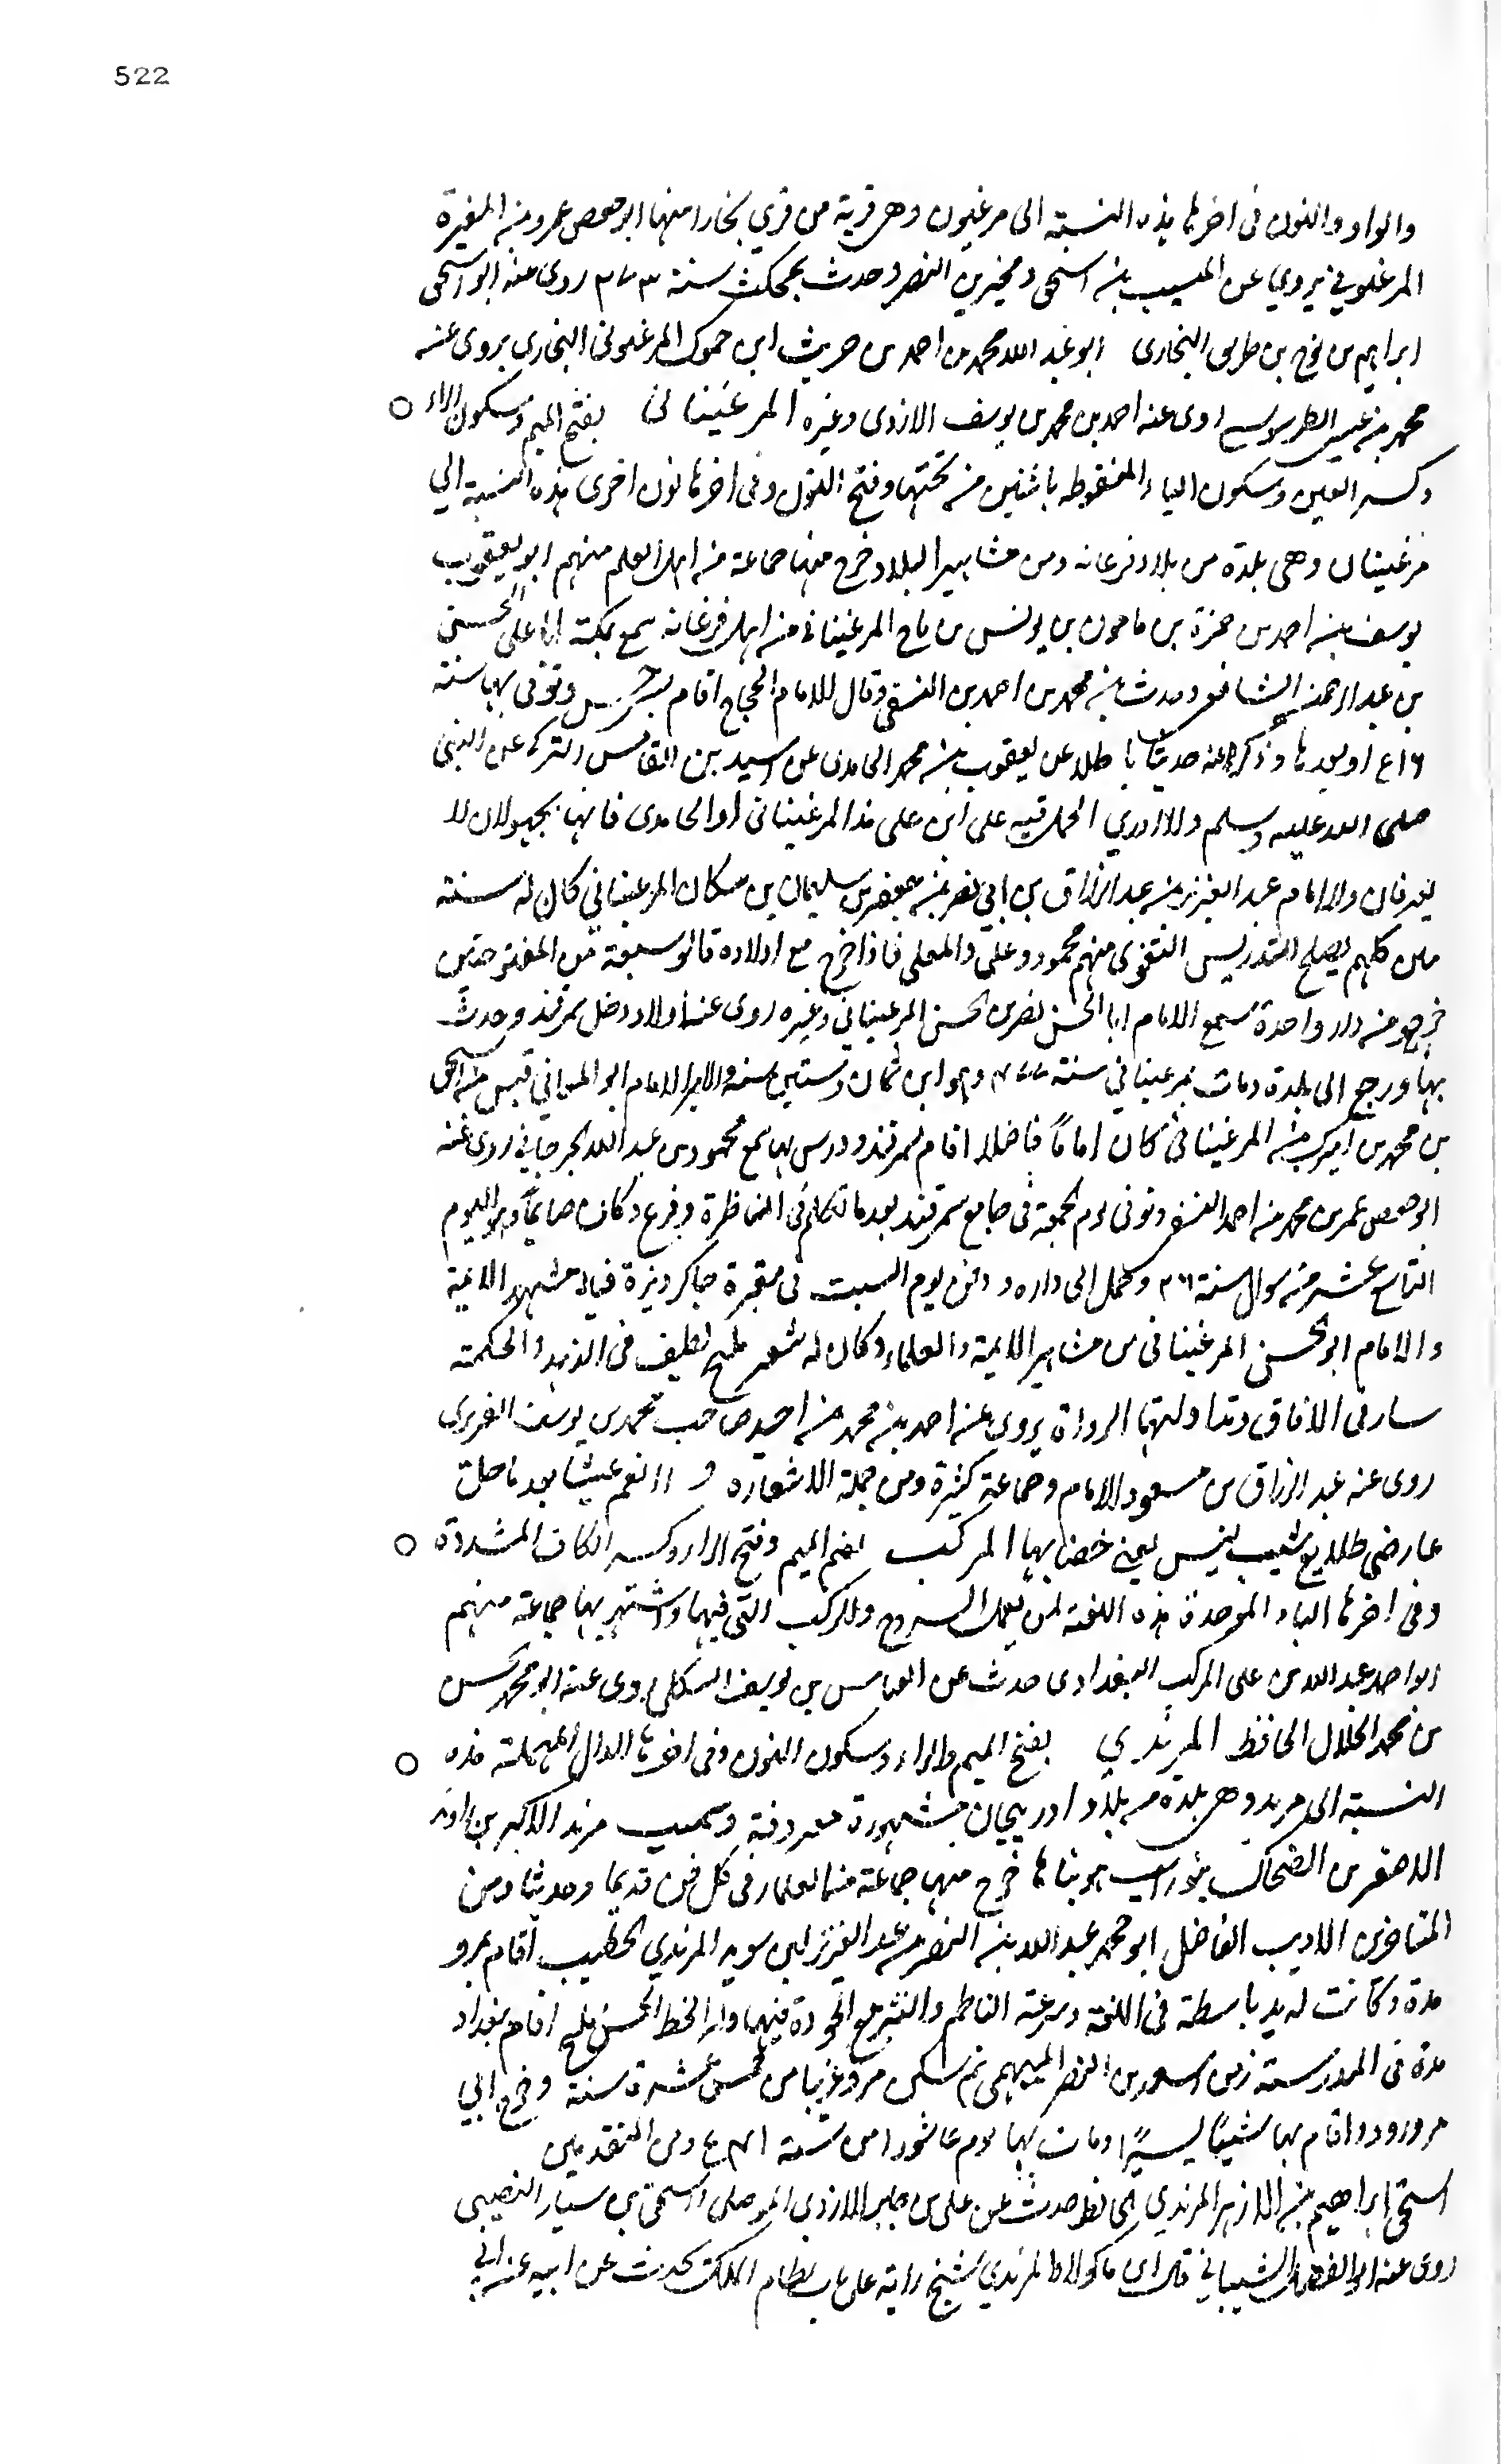 522
والواو والنون فى اخرها هذه النسبة الى مرغبون وهى قرية من قري بخارا منها ابو حفص عمرو بن المغيرة
المرغبوني يروي عن المسيب بن اسحق و محير بن النضر وحدث بمحكث سنة روى عنه ابو اسحق
ابراهيم بن نوح بن طريف البخارى ابو عبد الله محمد بن احمد بن حريث ابن حموك المرغبونى البخارى يروى عنه
محمد بن عيسى الطرسوسى روى عنه احمد بن محمد بن يوسف الازدى وغيره المرغينانى بفتح الميم وسكون الراء
وكسر الغين وسكون الياء المنقوطه باثنين من تحتها وفتح النون وفى اخرها نون اخرى هذه النسبة الي
مرغينان وهى بلدة من بلاد فرغانه ومن مشاهير البلاد خرج منها جماعة من اهل العلم منهم ابو يعقوب
يوسف بن احمد بن حمزة بن مامون بن يونس بن المرغينانى من اهل فرغانه سمع بمكة ابا على الحسن
بن عبد الرحمن الشافعى وحدث بن محمد بن احمد بن النسفى وقال للامام الحجاج اقام بسرخس وتوفى بها سنة
او بعدها وذكر عنه حديثا باطلا عن يعقوب بن محمد الحامدى عن اسيد بن القاسم التركى عن النبى
صلى الله عليه وسلم ولا ادري الحمل فيه على ابن على هذا المرغينانى او الحامدى فانهما مجهولان لا
يعرفان والامام عبد العزيز بن عبد الرزاق بن ابي نصر بن جعفر بن سليمان بن المرغيناني كان له ستة
بنين كلهم يصلح التدريس الفتوى منهم محمود وعلى والمعلى فاذا خرج مع اولاده قالو سبعة من المفتو حتين
خرجو من دار واحدة سمع الامام ابا الحسن نصر بن الحسن المرغيناني وغيره روى عنه اولاد دخل سمرقند وحدث
بها ورجع الى بلدة ومات بمرغيناني سنة ٤٧٧ وهو ابن ثمان وستين سنه والامير الامام ابو المعاني قيس بن اسحق
بن محمد بن اميرك بن المرغينانى كان اماماً فاضلا اقام بسمرقند ودرس بها سمع محمود بن عبد الله الجرجاني روى عنه
ابو حفص عمر بن محمد بن احمد النسفى وتوفى يوم الجمعة فى جامع سمرقند بعد ما تكلم فى المناظرة وفرغ وكان صايماً وهو اليوم
التاسع عشر من شوال سنة وحمل الى داره ودفن يوم السبت فى مقبرة جاكرديزة قبالة مشهد الايمة
والامام ابو الحسن المرغينانى من مشاهير الايمة والعلماء وكان له شعر مليح لطيف فى الزهد والحكمة
سار فى الافاق وتداولتها الرواة يروى عن احمد بن محمد بن احيد صاحب محمد بن يوسف الفربري
روى عنه عبد الرزاق بن مسعود الامام وجماعة كثيرة ومن جملة الاشعاره و أانعم عيشا بعد ما حل
عارضى طلايع شيب ليس يغنى خضابها المركب بضم الميم وفتح الراء وكسر الكاف المشددة
وفى اخرها الباء الموحدة هذه اللغة لمن يعمل السروج والركب التى فيها واشتهر بها جماعة منهم
ابو احمد عبد الله بن على المركب البغدادى حدث عن العباس بن يوسف الشكلى روى عنه ابو محمد الحسن
بن محمد الخلال الحافظ المرندي بفتح الميم والراء وسكون النون وفى اخرها الدال المهملة هذه
النسبة الى مرند وهى بلدة من بلاد اذربيجان مشهورة معروفة وسميت مرند الاكبر بن
الاصغر بن الضحاك بيوراسب هو بناها خرج منها جماعة من العلماء فى كل فن قديما وحديثا ومن
المتاخرين الاديب الفاضل ابو محمد عبد الله بن النضر بن عبد العزيز بن سويد المرندي الخطيب اقام بمرو
مدة وكانت له يد باسطة فى اللغة وسرعة الناظم والنثر مع الجودة فيهما وله الخط الحسن مليح اقام ببغداد
مدة فى المدرسة زمن اسعد بن النضر الميهنى ثم سكن مرو قريبا من خمس عشرة سنة وخرج الي
مرورود واقام بها شيئاً يسيراً ومات بها يوم عاشورا من سنة ومن المتقدمين
اسحق ابراهيم بن الازهر المرندي الحافظ حدث عن على بن جابر الازدى الموصلى واسحق بن سيار النصيبى
روى عنه ابو الفضل الشيباني قال ابن ماكولا والمرندي شيخ رايته على باب نظام الملك يحدث عن ابيه عن ابي